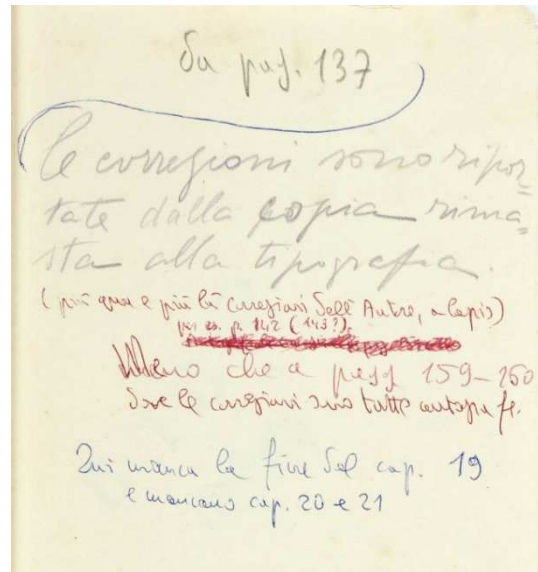 Da pag. 137
le correzioni sono ripor=
tate dalla copia rima=
sta alla tipografia.
(più qua e più là correzioni dell'Autore, a lapis)
per es. p. 142 (143?).
Meno che a pagg 159-160
dove le correzioni sono tutte autografe.
Qui manca la fine del cap. 19
e mancano cap. 20 e 21